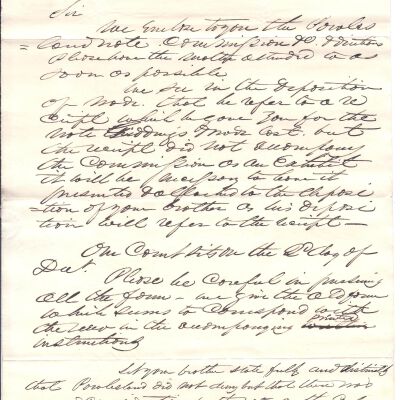 Sir
We Enclose to you the Powles
land note Commission &c. &
Please have the matter attended to as
soon as possible
We see in the Deposition
of Mode. that he refer to a re
ceipt which he gave you for the
note Giddings & Mode lost. but
the receipt did not accompany
the Commission as an Exhibit
it will be necessary to have it
presented & attached to the deposi
=tion of your brother as his deposi
tion will refer to the receipt —
Our Court sits on the 2d day of
Dec.
Please be careful in pursuing
all the forms — we give the old form
to which seems to correspond with
the new in the accompanying printed
instructions
Let your brother state fully and distinctly
that Powlesland did not deny but that there was